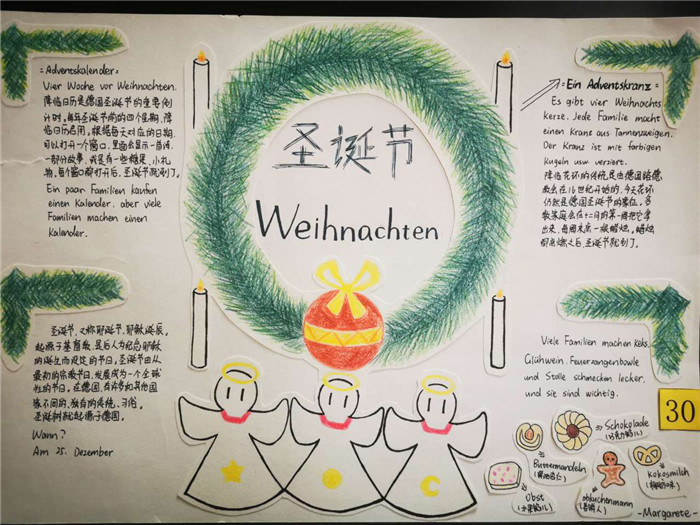 =Adventskalender=
Vier Woche vor Weihnachten.
降临日历是德国圣诞节的重要倒
计时,每年圣诞节前的四个星期,降
临日历启用,根据每天对应的日期,
可以打开一个窗口,里面会显示一首诗、
一部份故事,或是有一些糖果、小礼
物。每个窗口都打开后,圣诞节就到了。
Ein paar Familien kaufen
einen Kalender. aber viele
Familien machen einen
Kalander.
圣诞节
Weihnachten
=Ein Adventskranz=
Es gibt vier Weihnachts
kerze. Jede Familie macht
einen Kranz aus Tannenzweigen.
Der Kranz ist mit farbigen
Kugeln usw verziert.
降临花环的传统是由德国路德
教会在16世纪开始的,今天花环
仍然是德国圣诞节的象征,多
数家庭会在十二月的第一周把它拿
出来,每周末点一根蜡烛。蜡烛
都点燃之后,圣诞节就到了。
圣诞节,又称耶诞节、耶稣诞辰,
起源于基督教,是后人为纪念耶稣
的诞生而规定的节日。圣诞节由从
最初的宗教节日,发展成为一个全球
性的节日。在德国,有许多如其他国
家不同的、独有的传统、习俗。
圣诞树就起源于德国。
Wann?
Am 25. Dezember
Viele Familien machen keks.
Glühwein. Feuerzangenbowle
und Stolle schmecken lecker.
und sie sind wichtig.
30
Schokolade
Buttermandeln
Obst
ebkuchenmann
Kokosmilch
-Margarete-